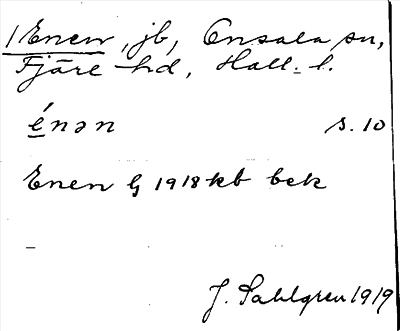 1 Enen, jb, Onsala sn,
Fjäre hd, Hall. l.
énən s. 10
Enen G 1918 kb bek
J. Sahlgren 1919